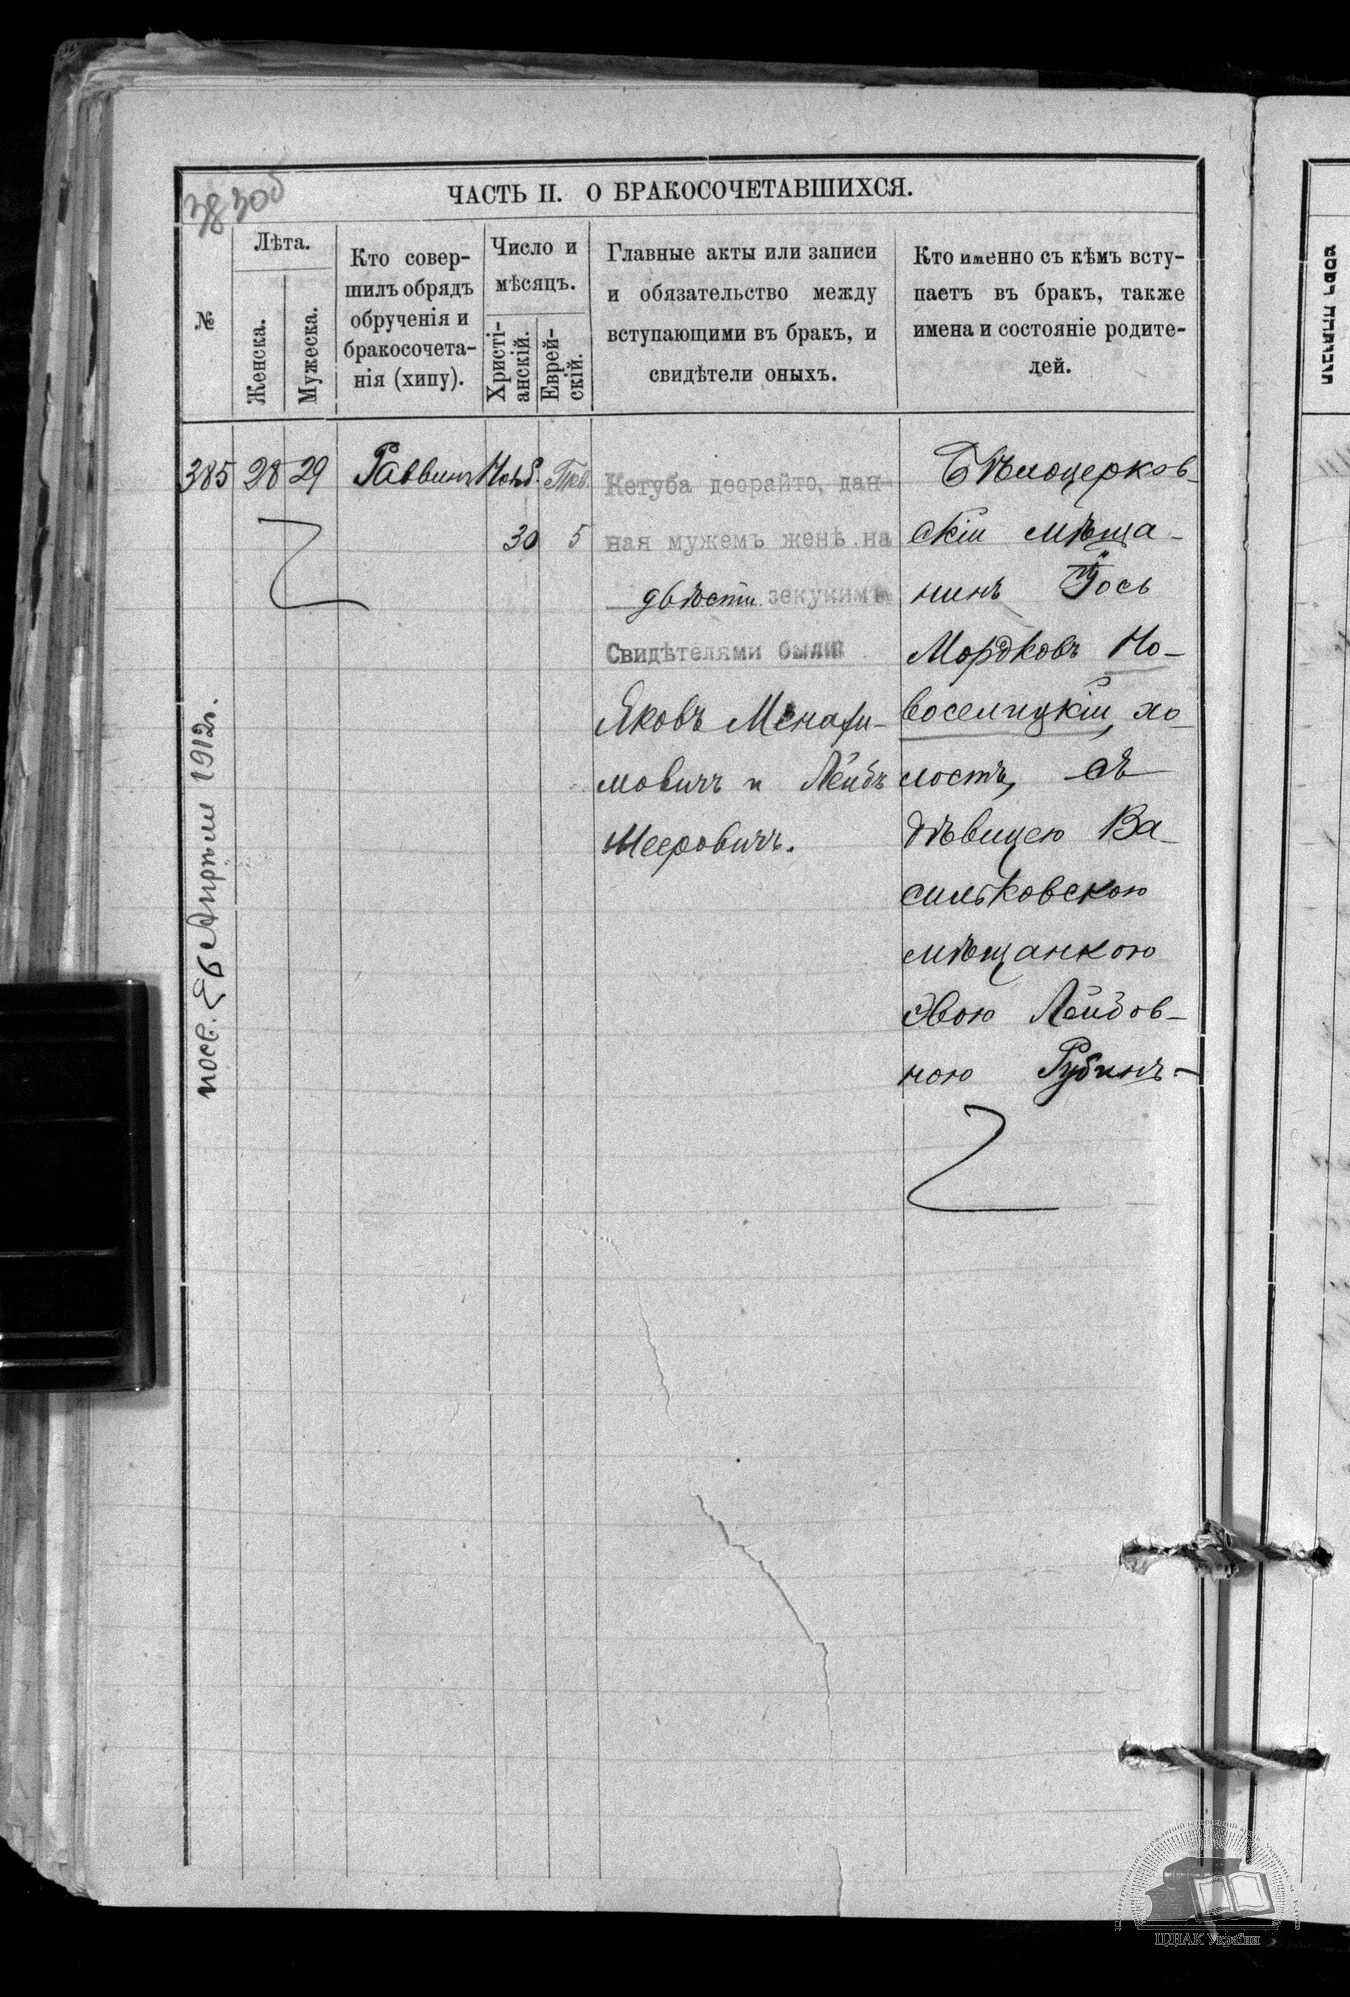 383об
ЧАСТЬ II. О БРАКОСОЧЕТАВШИХСЯ.
№
Лѣта.
Женска.
Мужеска.
Кто совер-
шилъ обрядъ
обрученія и
бракосочета-
нія (хипу).
Число и
мѣсяцъ.
Христі-
анскій.
Еврей-
скій.
Главные акты или записи
и обязательство между
вступающими въ бракъ, и
свидѣтели оныхъ.
Кто именно съ кѣмъ всту-
паетъ въ бракъ, также
имена и состояніе родите-
лей.
385 28 29 Раввинъ Нояб. Тев.
30 5
Кетуба деорайто, дан-
ная мужемъ женѣ на
двѣсти зекукимъ
Свидѣтелями были:
Яковъ Менахи-
мовичъ и Лейбъ
Мееровичъ.
Бѣлоцерков-
скій мѣща-
нинъ Іось
Мордковъ Но-
воселицкій, хо-
лостъ, съ
дѣвицею Ва-
сильковскою
мѣщанкою
Хвою Лейбов-
ною Рубинъ-
1912г.
ЦДІАК України